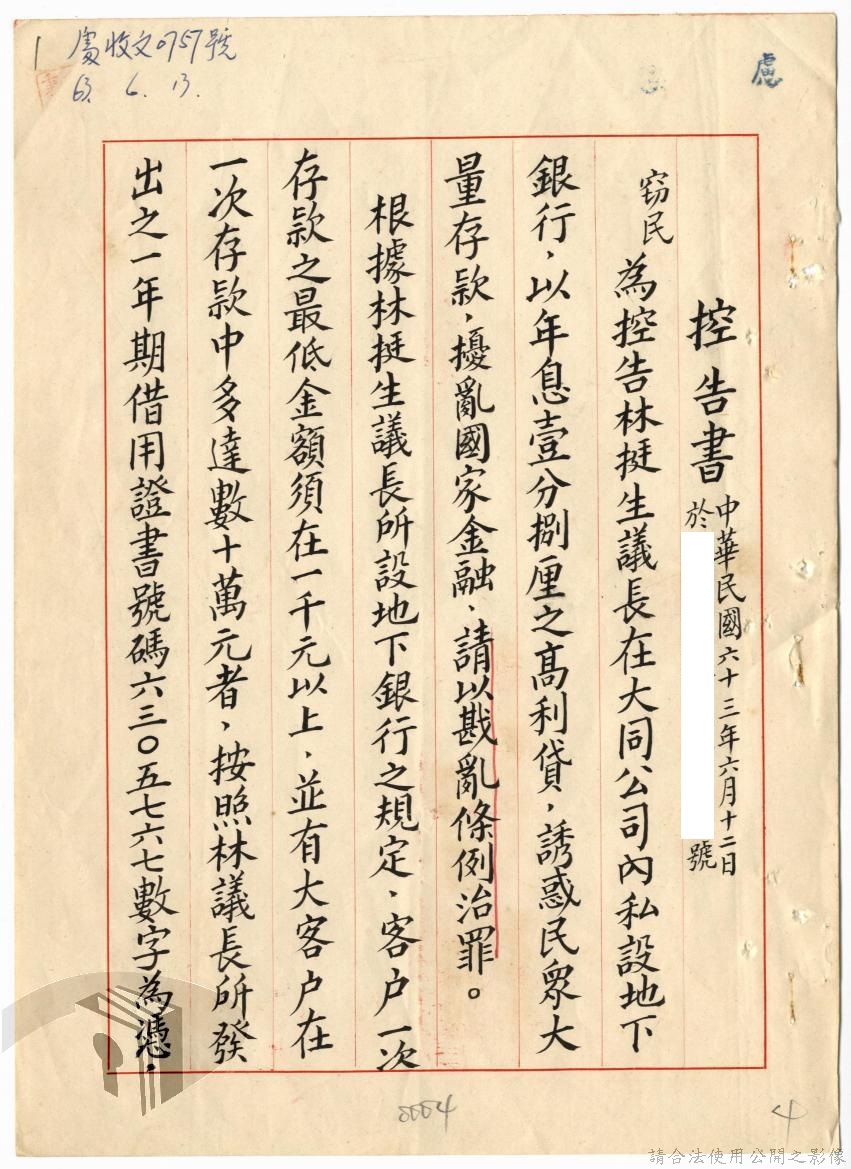 處收文0757號
63. 6. 13.
控告書
中華民國六十三年六月十二日
於
號
竊民為控告林挺生議長在大同公司內私設地下
銀行，以年息壹分捌厘之高利貸，誘惑民眾大
量存款，擾亂國家金融，請以戡亂條例治罪。
根據林挺生議長所設地下銀行之規定，客户一次
存款之最低金額須在一千元以上，並有大客户在
一次存款中多達數十萬元者，按照林議長所發
出之一年期借用證書號碼六三〇五七六七數字為憑，
0004
4
請合法使用公開之影像